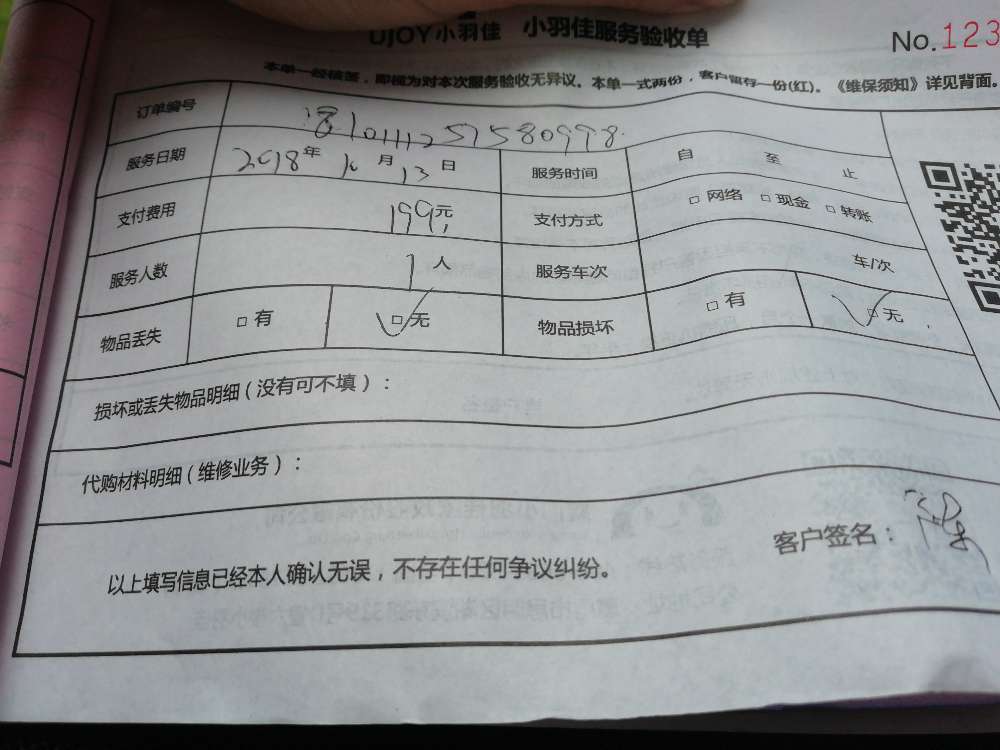 UJOY小羽佳 小羽佳服务验收单 No.123
本单一经核签，即视为对本次服务验收无异议。本单一式两份，客户留存一份(红)。《维保须知》详见背面。
订单编号
服务日期 2018年 10月 13日 服务时间 自 至 止
支付费用 199元 支付方式 □ 网络 □ 现金 □ 转账
服务人数 1人 服务车次 车/次
物品丢失 □ 有 □ 无 物品损坏 □ 有 □ 无
损坏或丢失物品明细（没有可不填）：
代购材料明细（维修业务）：
客户签名：
以上填写信息已经本人确认无误，不存在任何争议纠纷。